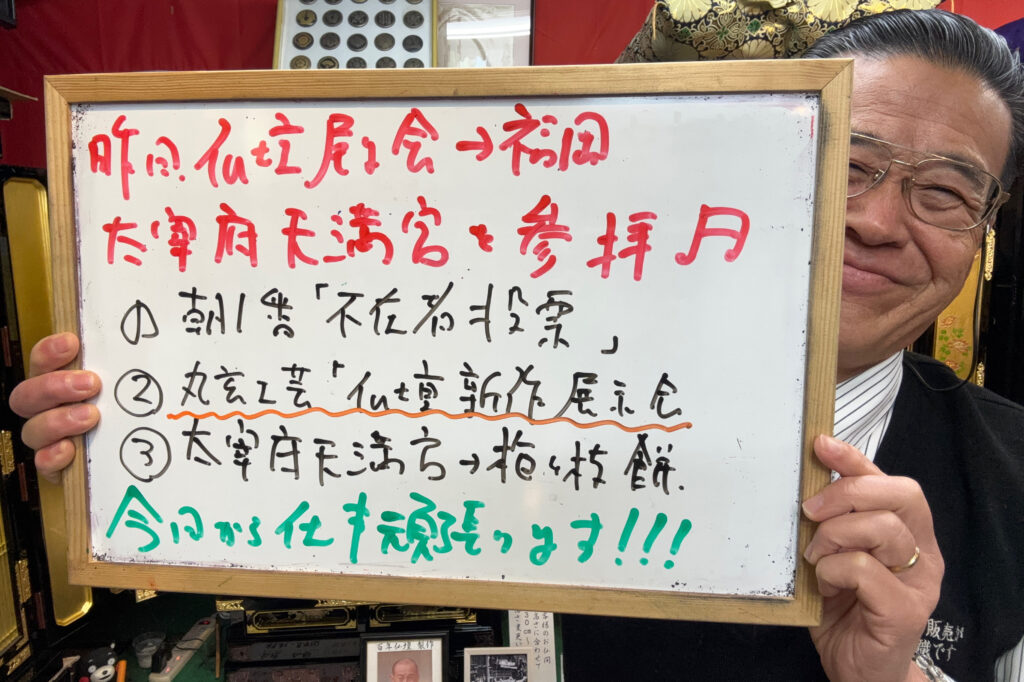 昨日仏壇展示会→福岡
太宰府天満宮を参拝
① 朝1番「不在者投票」
② 丸玄工芸「仏壇新作展示会
③ 太宰府天満宮→梅ヶ枝餅.
今日から仕事頑張ります!!!
百年仏壇 製作
販売
職です